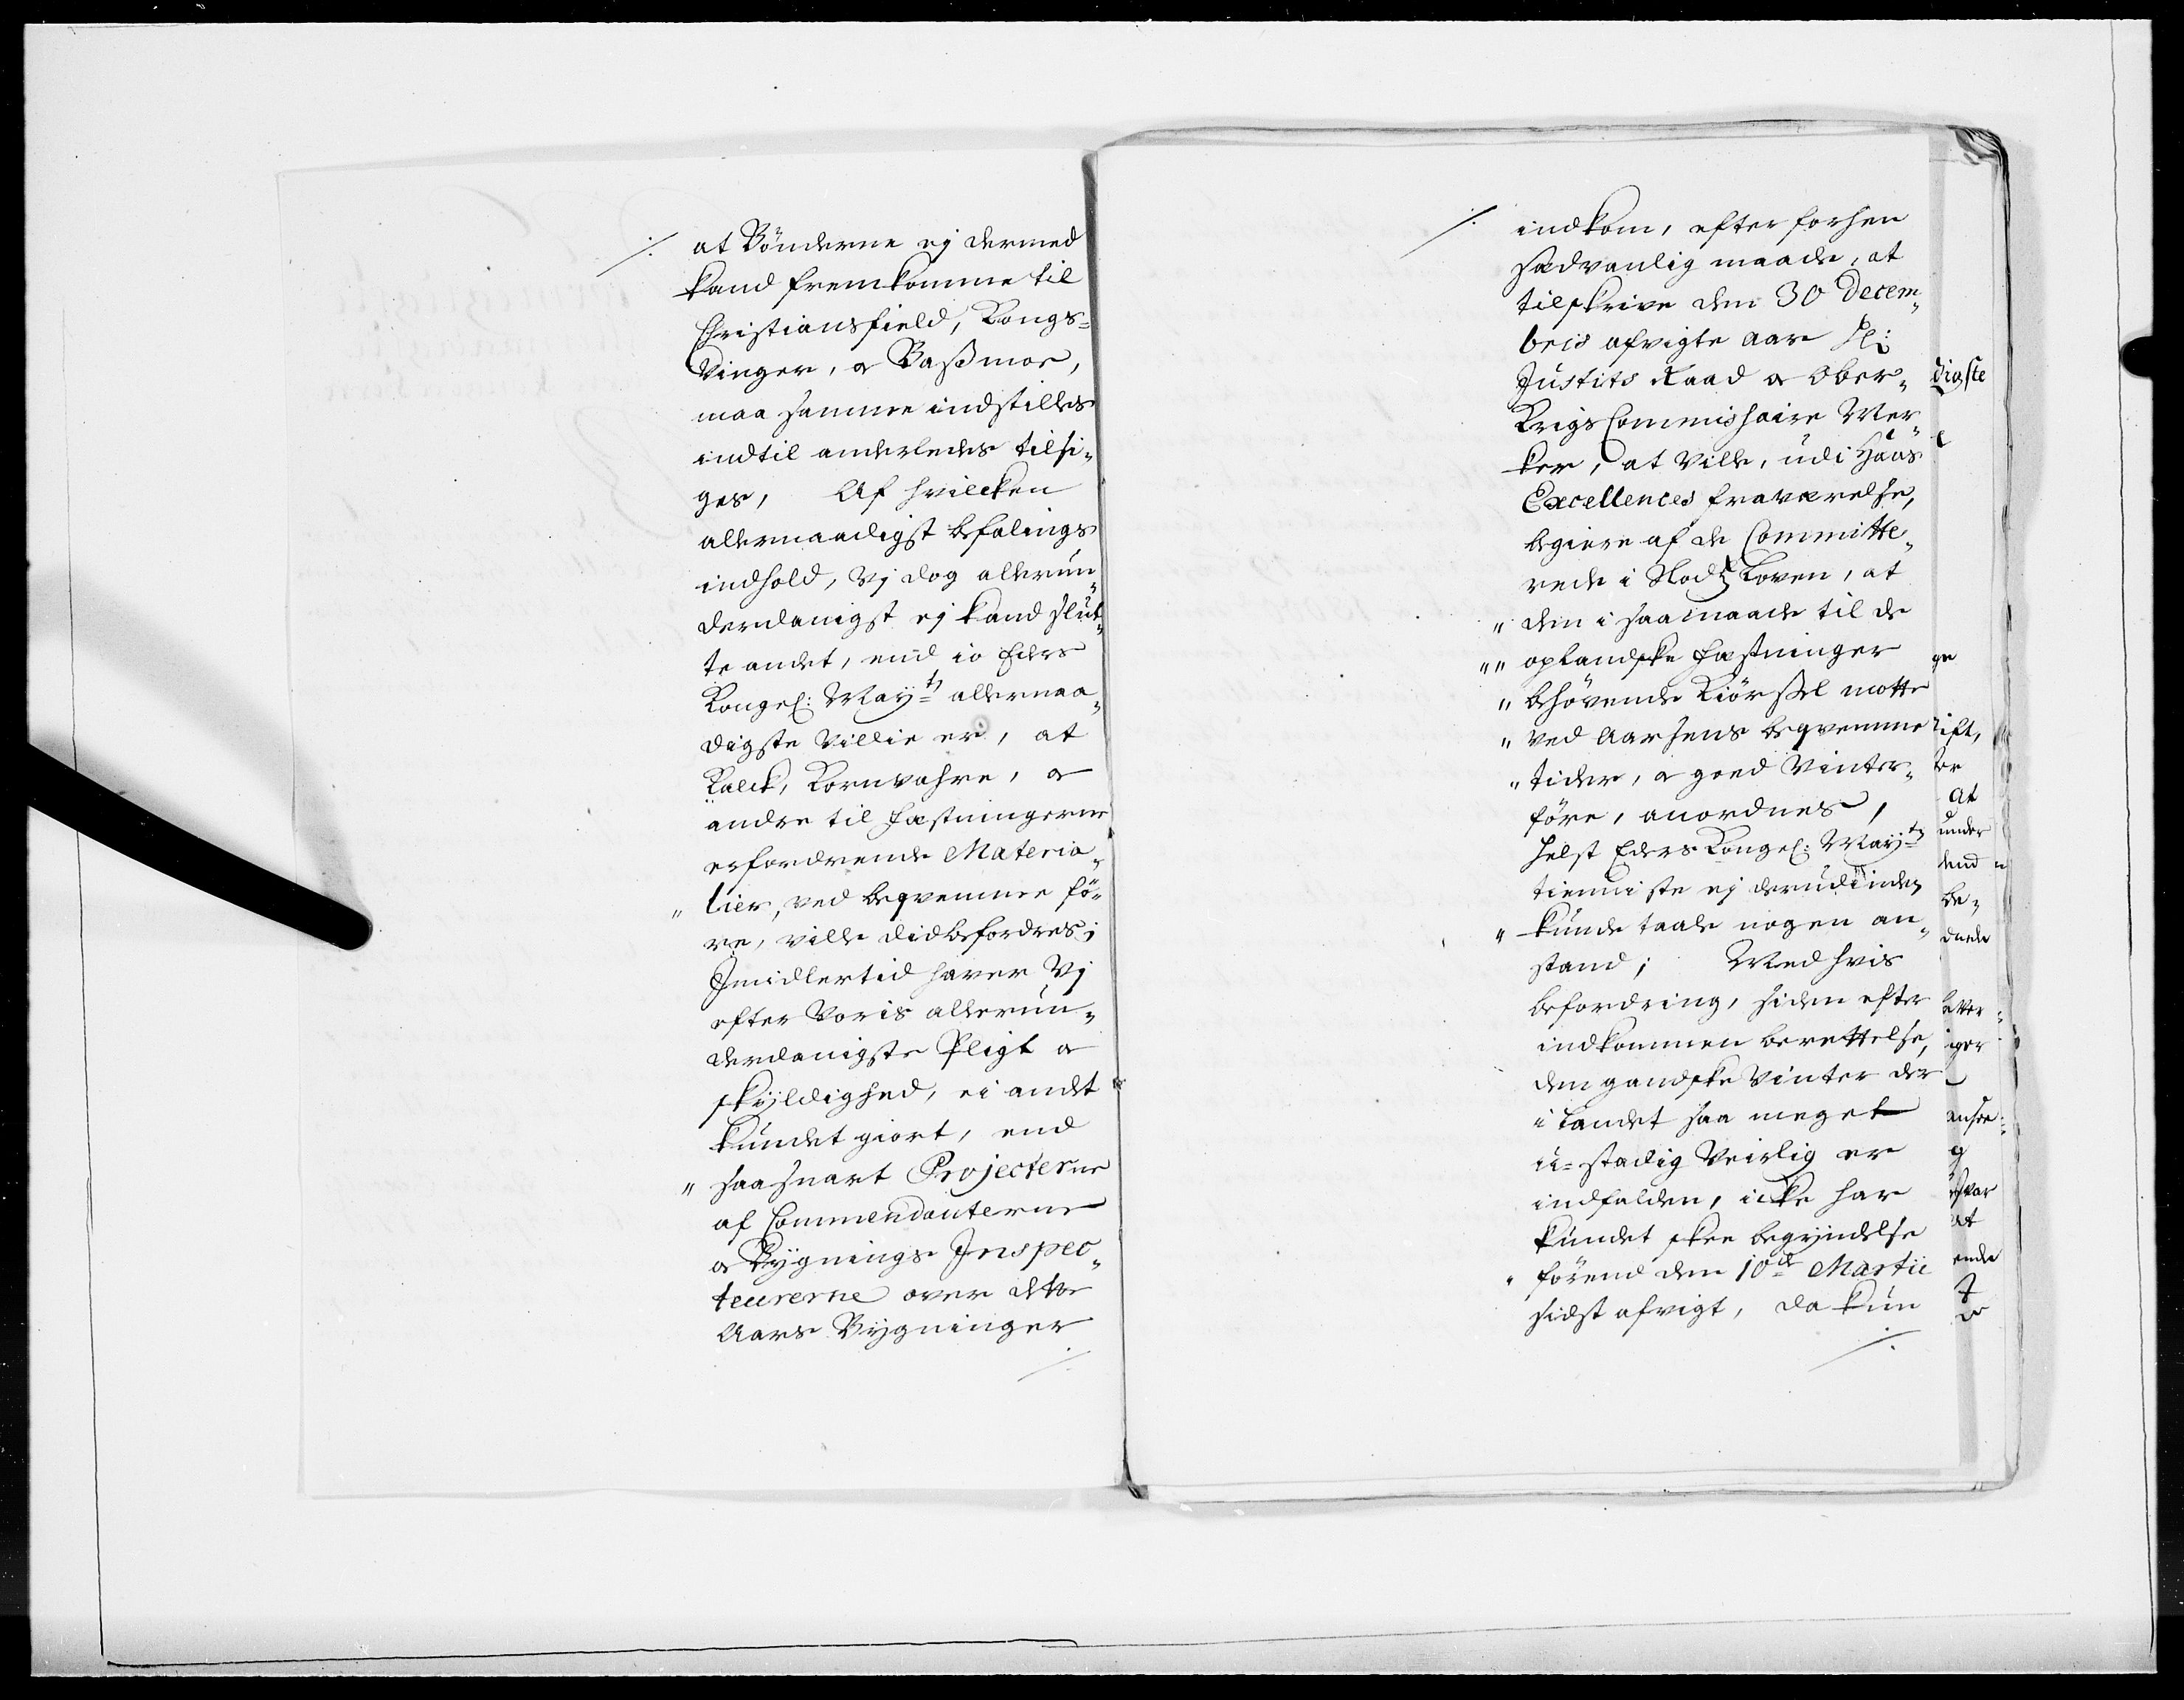 at Bönderne ej dermed
kand fremkomme til
Christiansfield, Kongs-
Vinger, & Basmoe,
maa samme indstilles
indtil anderledes tilsi-
ges, Af hvilcken
allernaadigst befalings
indhold, Vj dog allerun-
derdanigst ej kand slut-
te andet, end io Eders
Kongel: Mayts allernaa-
digste Villie er, at
Kalck, Kornvahre, &
andre til Fæstningerne
erfordrende Materia-
" lier, ved beqvemme fö-
re, ville did befordres;
Imidlertid haver Vj
efter Voris allerun-
derdanigste Pligt &
skyldighed, ei andet
kundet giort, end
" saasnart Projecterne
af Commendanterne
& Bygnings Inspec-
teurerne over dette
Aars Bygninger
./.
./. indkom, efter forhen
sædvanlig maade, at
tilskrive den 30 Decem-
bris afvigte aar Hr:
Justits Raad & Ober-
Krigs Commissaire Wer-
ker, at Ville, udi Hans
Excellences fraværelse,
begiere af de Committe-
rede i Slodz Loven, at
" den i saamaade til de
"" oplandske Fæstninger
" behövende Kiörsel motte
" ved Aarsens beqvemme
" tider, & goed Vinter-
före, anordnes,
helst Eders Kongel: Mayts
tienniste ej derudinden
" kunde taale nogen an-
stand; Med hvis
befordring, siden efter
indkommen berettelse,
den gandske Vinter der
i Landet saa meget
u-stadig Veirlig er
indfalden, icke har
kundet skee begyndelse
" förend den 10de Martii
sidst afvigt, da kun
./.
digste
ge
rift,
at
under
end
be-
ende